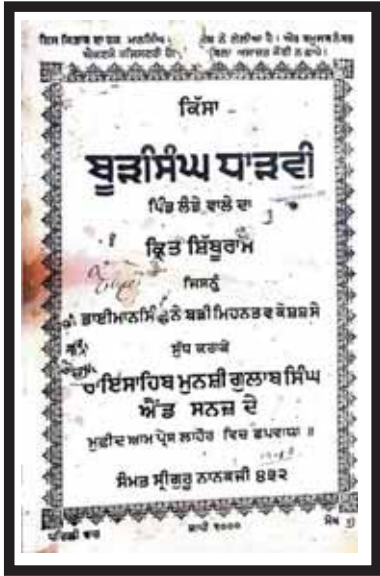 ਇਸ ਕਿਤਾਬ ਦਾ ਹਕ ਮਾਨਸਿੰਘ ਨੇ ਲੇਲੀਆ ਹੈ।
ਕਿੱਸਾ
ਬੂੜਸਿੰਘ ਧਾੜਵੀ
ਪਿੰਡ ਲੰਡੇ ਵਾਲੇ ਦਾ
ਕ੍ਰਿਤ ਸ਼ਿੱਬੂਰਾਮ
ਜਿਸਨੂੰ
ਭਾਈਮਾਨਸਿੰਘ ਨੇ ਬੜੀ ਮਿਹਨਤ ਵ ਕੋਸ਼ਸ਼ਸੇ
ਸ਼ੁੱਧ ਕਰਾਕੇ
ਰਾਇਸਾਹਿਬ ਮੁਨਸ਼ੀ ਗੁਲਾਬ ਸਿੰਘ
ਐਂਡ ਸਨਜ਼ ਦੇ
ਮੁਫ਼ੀਦ ਆਮ ਪ੍ਰੈਸ ਲਾਹੌਰ ਵਿਚ ਛਪਵਾਯਾ ॥
ਸੰਮਤ ਸ੍ਰੀ ਗੁਰੂ ਨਾਨਕਜੀ ੪੩੨
ਪਹਿਲੀ ਵਾਰ ਕਾਪੀ ੧੦੦੦ ਮੋਲ